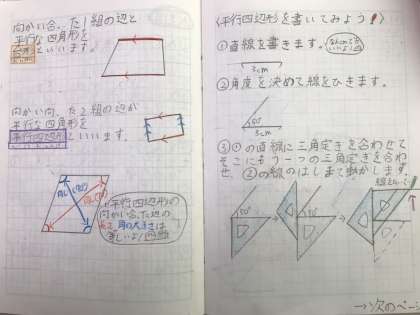 向かい合った1組の辺と
平行な四角形を
台形といいます。
向かい向った2組の辺が
平行な四角形を
平行四辺形といいます。
平行四辺形の
向かい合った辺の
長さ、角の大きさは
等しいよ!
〈平行四辺形を書いてみよう!〉
①直線を書きます。
3cm
②角度を決めて線をひきます。
50°
3cm
③①の直線に三角定ぎを合わせて
そこにもう一つの三角定ぎを合わ
せ、②の線のはしまで動かします。
50°
50°
→次のページ